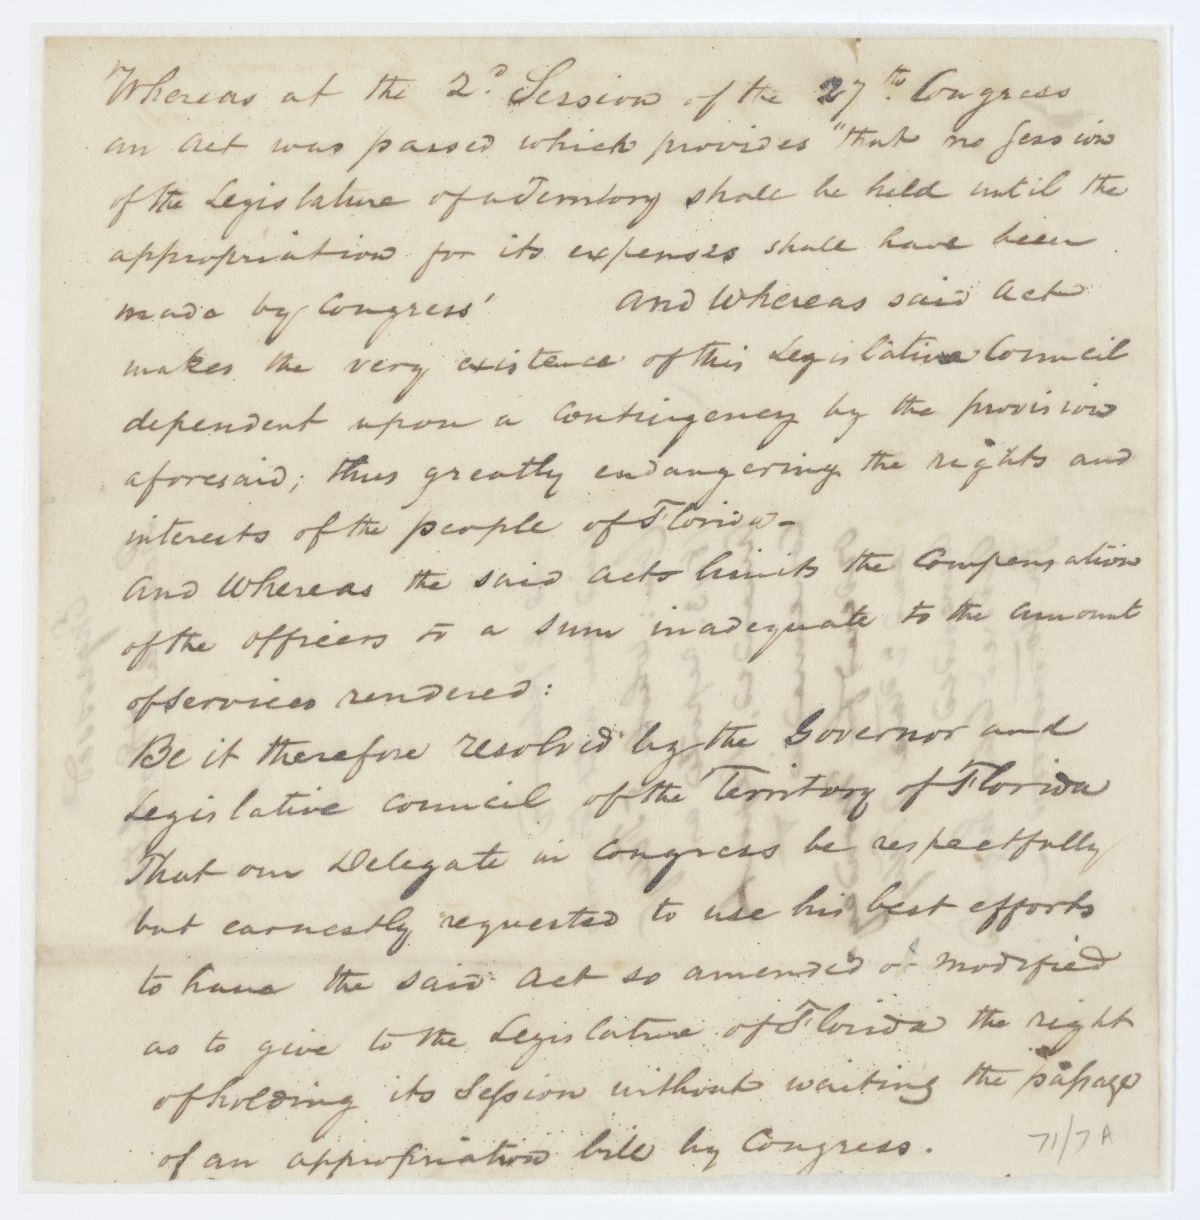 Whereas at the 2d. Session of the 27th. Congress
an act was passed which provides "that no Session
of the Legislature of a Territory shall be held until the
appropriation for its expenses shall have been
made by Congress' And Whereas said Act
makes the very existence of this Legislative Council
dependent upon a contingency by the provision
aforesaid; thus greatly endangering the rights and
interests of the people of Florida-
And Whereas the said acts limits the compensation
of the officers to a sum inadequate to the amount
of services rendered:
Be it therefore resolved by the Governor and
Legislative Council of the Territory of Florida
That our Delegate in Congress be respectfully
but earnestly requested to use his best efforts
to have the said act so amended or modified
as to give to the Legislature of Florida the right
of holding its Session without waiting the passage
of an appropriation bill by Congress.
71/7A